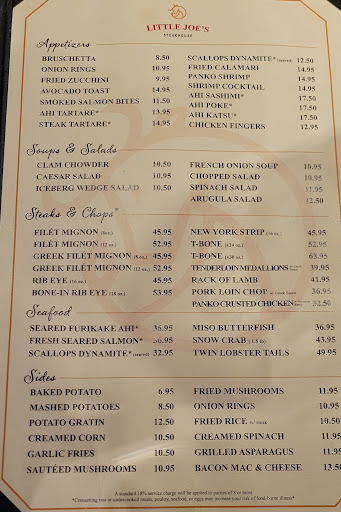 LITTLE JOE'S
STEAKHOUSE
Appetizers
BRUSCHETTA 8.50
ONION RINGS 10.95
FRIED ZUCCHINI 9.95
AVOCADO TOAST 14.95
SMOKED SALMON BITES 11.50
AHI TARTARE* 13.95
STEAK TARTARE* 14.95
SCALLOPS DYNAMITE* (seared) 12.50
FRIED CALAMARI 14.95
PANKO SHRIMP 14.95
SHRIMP COCKTAIL 14.95
AHI SASHIMI* 17.50
AHI POKE* 17.50
AHI KATSU* 17.50
CHICKEN FINGERS 12.95
Soups & Salads
CLAM CHOWDER 10.50
CAESAR SALAD 10.95
ICEBERG WEDGE SALAD 10.50
FRENCH ONION SOUP 10.95
CHOPPED SALAD 10.95
SPINACH SALAD 11.95
ARUGULA SALAD 12.50
Steaks & Chops*
FILÉT MIGNON (8oz.) 45.95
FILÉT MIGNON (12 oz.) 52.95
GREEK FILÉT MIGNON (8 oz.) 45.95
GREEK FILÉT MIGNON (12 oz.) 52.95
RIB EYE (16 oz.) 45.95
BONE-IN RIB EYE (18 oz.) 53.95
NEW YORK STRIP (16 oz.) 45.95
T-BONE (424 oz.) 52.95
T-BONE (30 oz.) 63.95
TENDERLOIN MEDALLIONS 39.95
RACK OF LAMB 41.95
PORK LOIN CHOP 36.95
PANKO CRUSTED CHICKEN 32.50
Seafood
SEARED FURIKAKE AHI* 36.95
FRESH SEARED SALMON* 36.95
SCALLOPS DYNAMITE* (seared) 32.95
MISO BUTTERFISH 36.95
SNOW CRAB (1.5 lb) 43.95
TWIN LOBSTER TAILS 49.95
Sides
BAKED POTATO 6.95
MASHED POTATOES 8.50
POTATO GRATIN 12.50
CREAMED CORN 10.50
GARLIC FRIES 10.50
SAUTÉED MUSHROOMS 10.95
FRIED MUSHROOMS 11.95
ONION RINGS 10.95
FRIED RICE w/ steak 10.50
CREAMED SPINACH 11.95
GRILLED ASPARAGUS 11.95
BACON MAC & CHEESE 13.50
A standard 18% service charge will be applied to parties of 8 or more
*Consuming raw or undercooked meats, poultry, seafood, or eggs may increase your risk of food-borne illness*